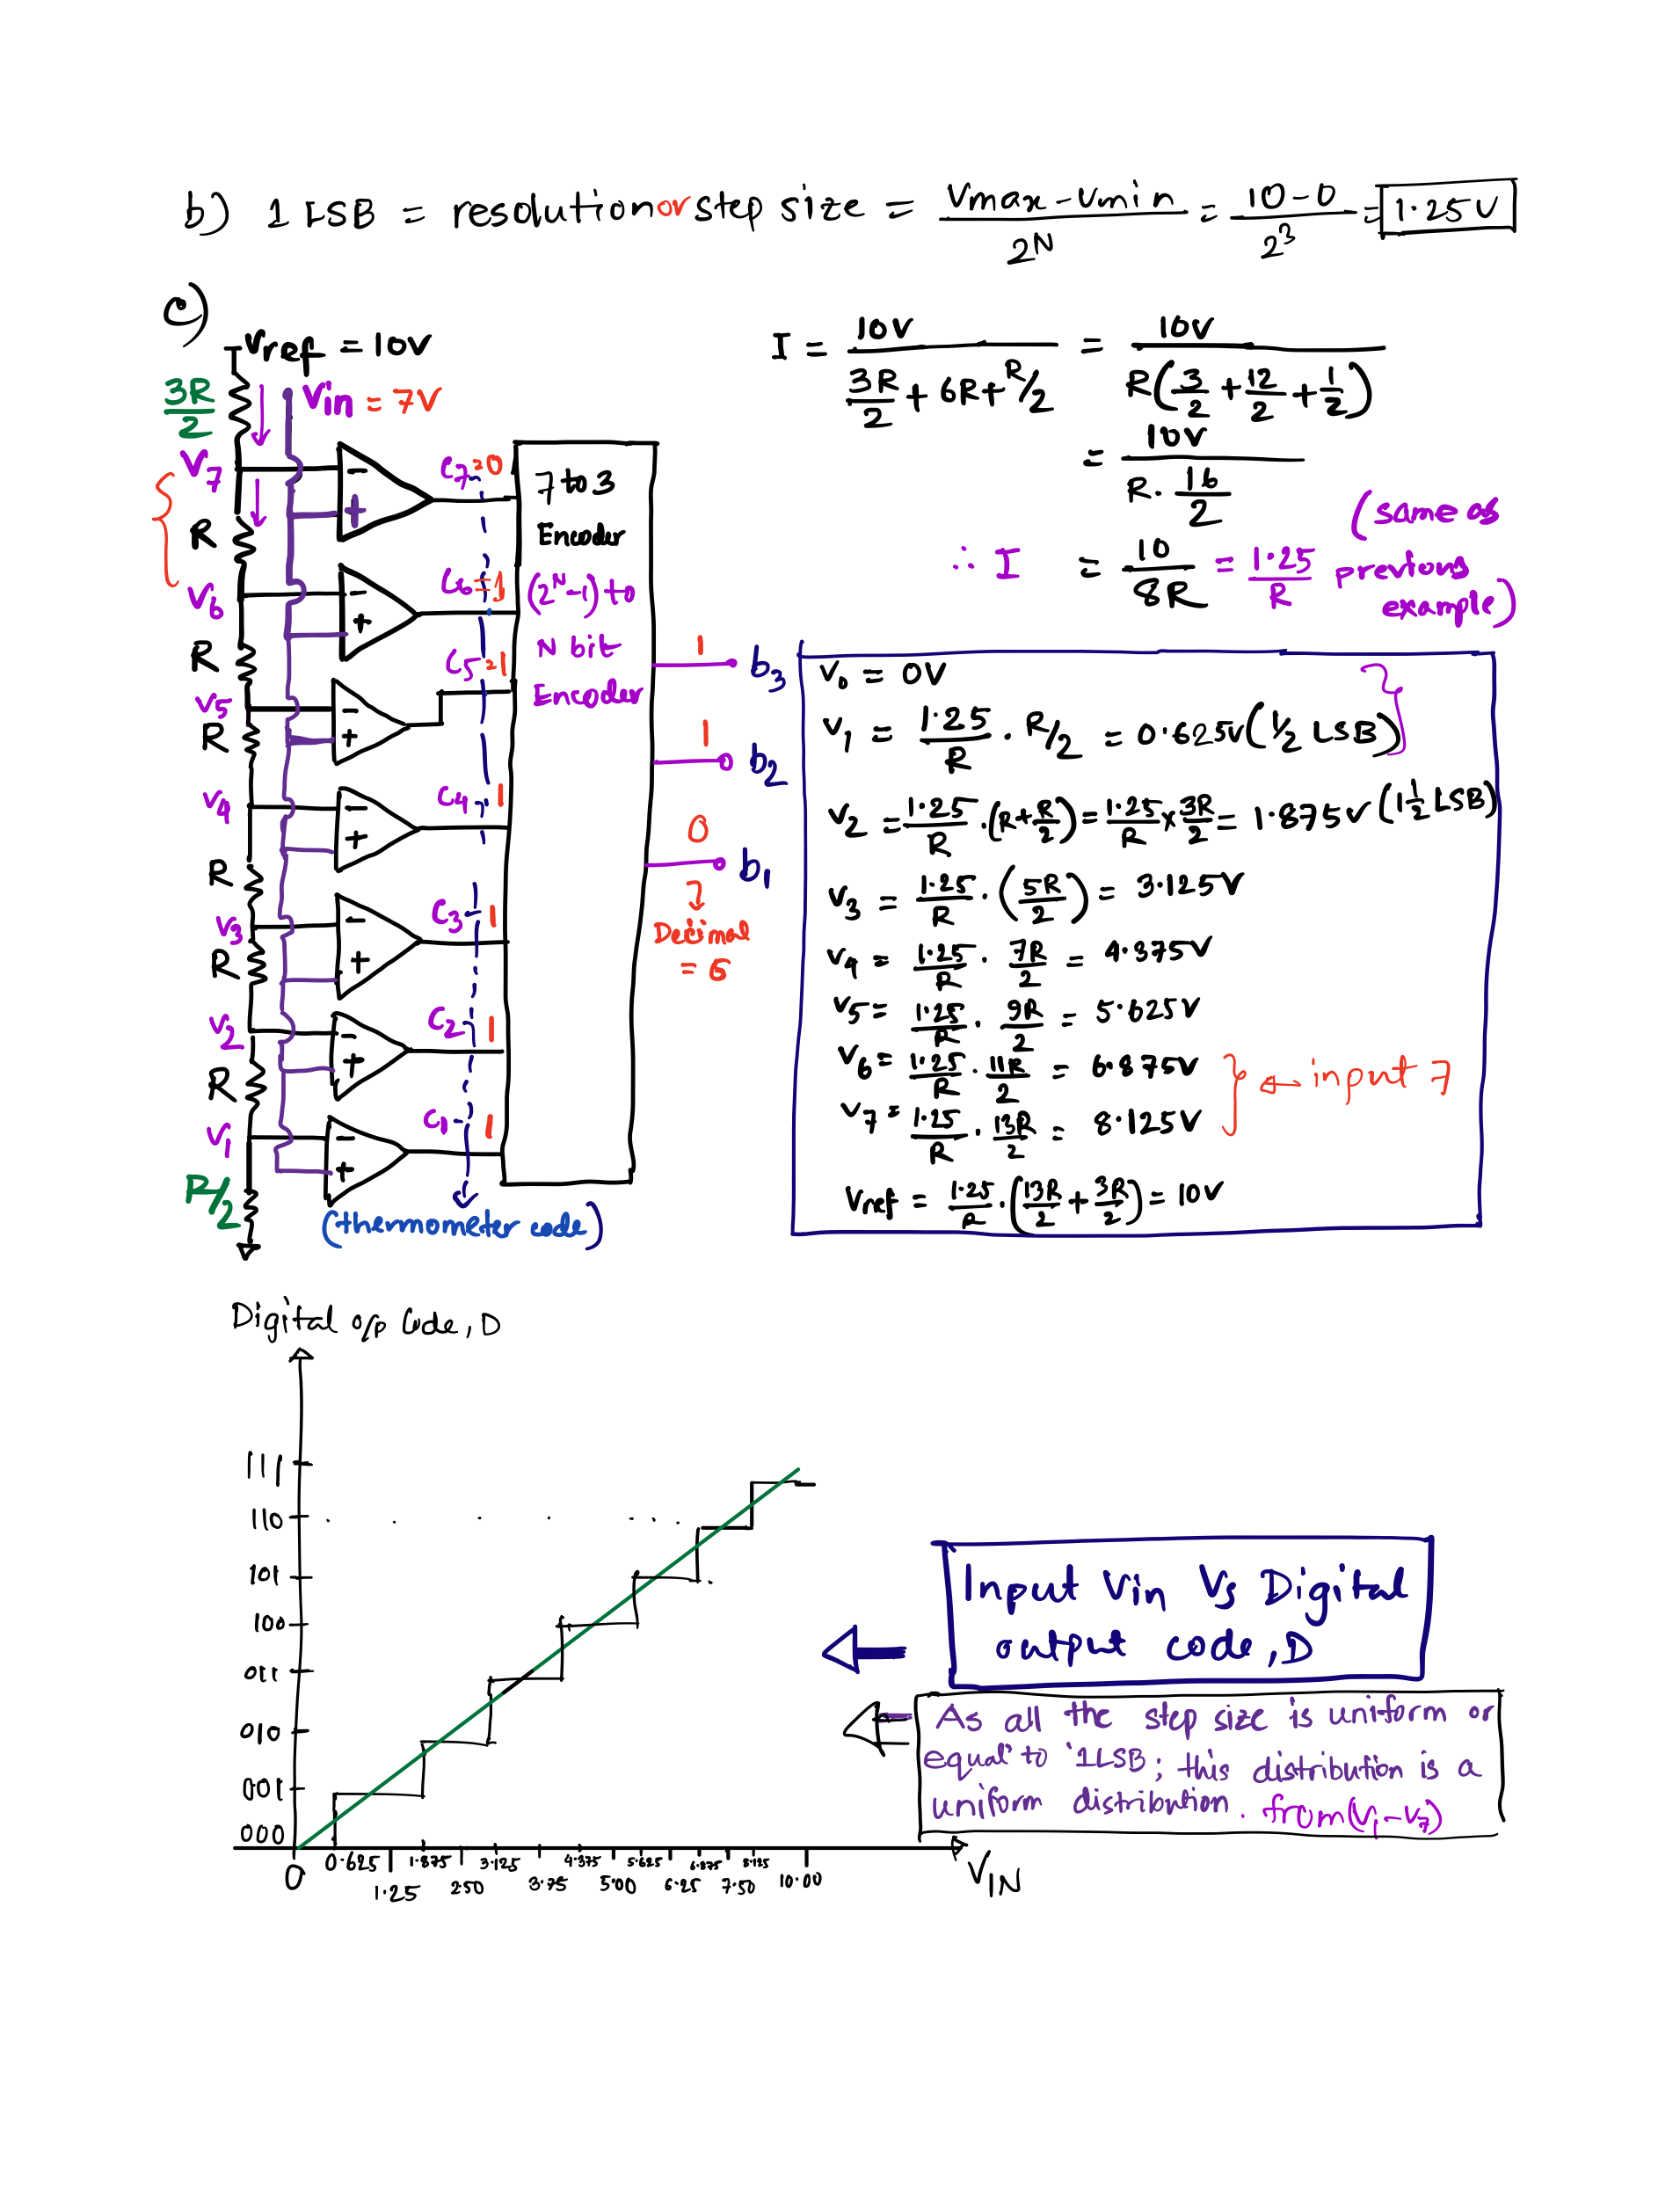 b) 1 LSB = resolution or step size = (Vmax - Vmin)/2^N = (10-0)/2^3 = 1.25V
c)
Vref = 10V
3R/2
Vin = 7V
V7
R
V6
R
V5
R
V4
R
V3
R
V2
R
V1
R/2
- +
- +
- +
- +
- +
- +
- +
C7=0
C6=1
C5=1
C4=1
C3=1
C2=1
C1=1
(thermometer code)
7 to 3
Encoder
(2^N-1) to
N bit
Encoder
1 b3
1 b2
0 b1
Decimal
= 6
I = 10V/(3R/2 + 6R + R/2) = 10V/(R(3/2 + 12/2 + 1/2))
= 10V/(R · 16/2)
∴ I = 10/8R = 1.25/R
(same as
previous
example)
V0 = 0V
V1 = 1.25/R · R/2 = 0.625V (1/2 LSB)
V2 = 1.25/R · (R + R/2) = 1.25/R × 3R/2 = 1.875V (1 1/2 LSB)
V3 = 1.25/R · (5R/2) = 3.125V
V4 = 1.25/R · 7R/2 = 4.375V
V5 = 1.25/R · 9R/2 = 5.625V
V6 = 1.25/R · 11R/2 = 6.875V
V7 = 1.25/R · 13R/2 = 8.125V
← input 7
Vref = 1.25/R · (13R/2 + 3R/2) = 10V
Digital o/p Code, D
111
110
101
100
011
010
001
000
0 0.625 1.875 3.125 4.375 5.625 6.875 8.125
1.25 2.50 3.75 5.00 6.25 7.50 10.00
VIN
Input Vin Vs Digital
output code, D
As all the step size is uniform or
equal to 1LSB; this distribution is a
uniform distribution. from (V1-V7)